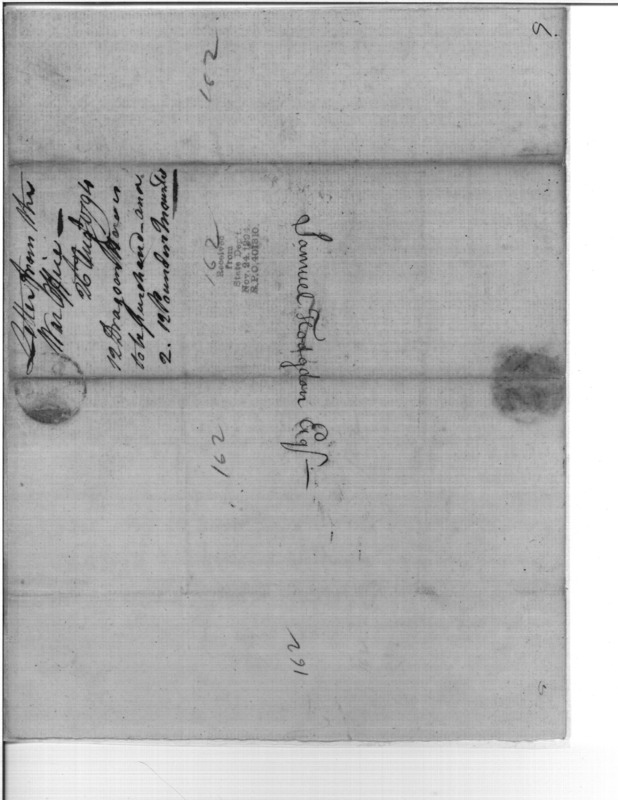 9
162
Letter from the
War Office
26th Augt 1794
12 Dragoon Horses
to be purchased - and
2. 12 Pounders Mounted
162
Received
from
State Dept.
Nov. 24, 190
R.P.O. 401310
Samuel Hodgdon Esqr
162
162